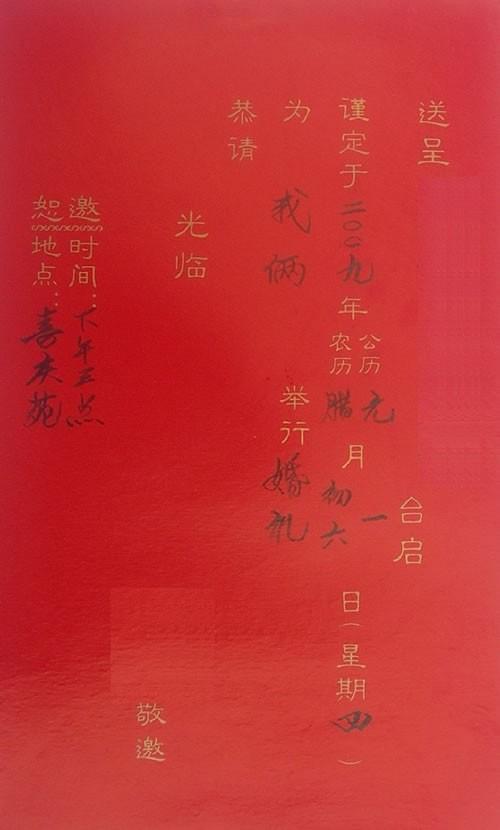 送呈 台启
谨定于二〇〇九年
公历元月一日(星期四)
农历腊 初六
为我俩举行婚礼
恭请
光临
敬邀
恕邀
时间:下午五点
地点:喜庆苑